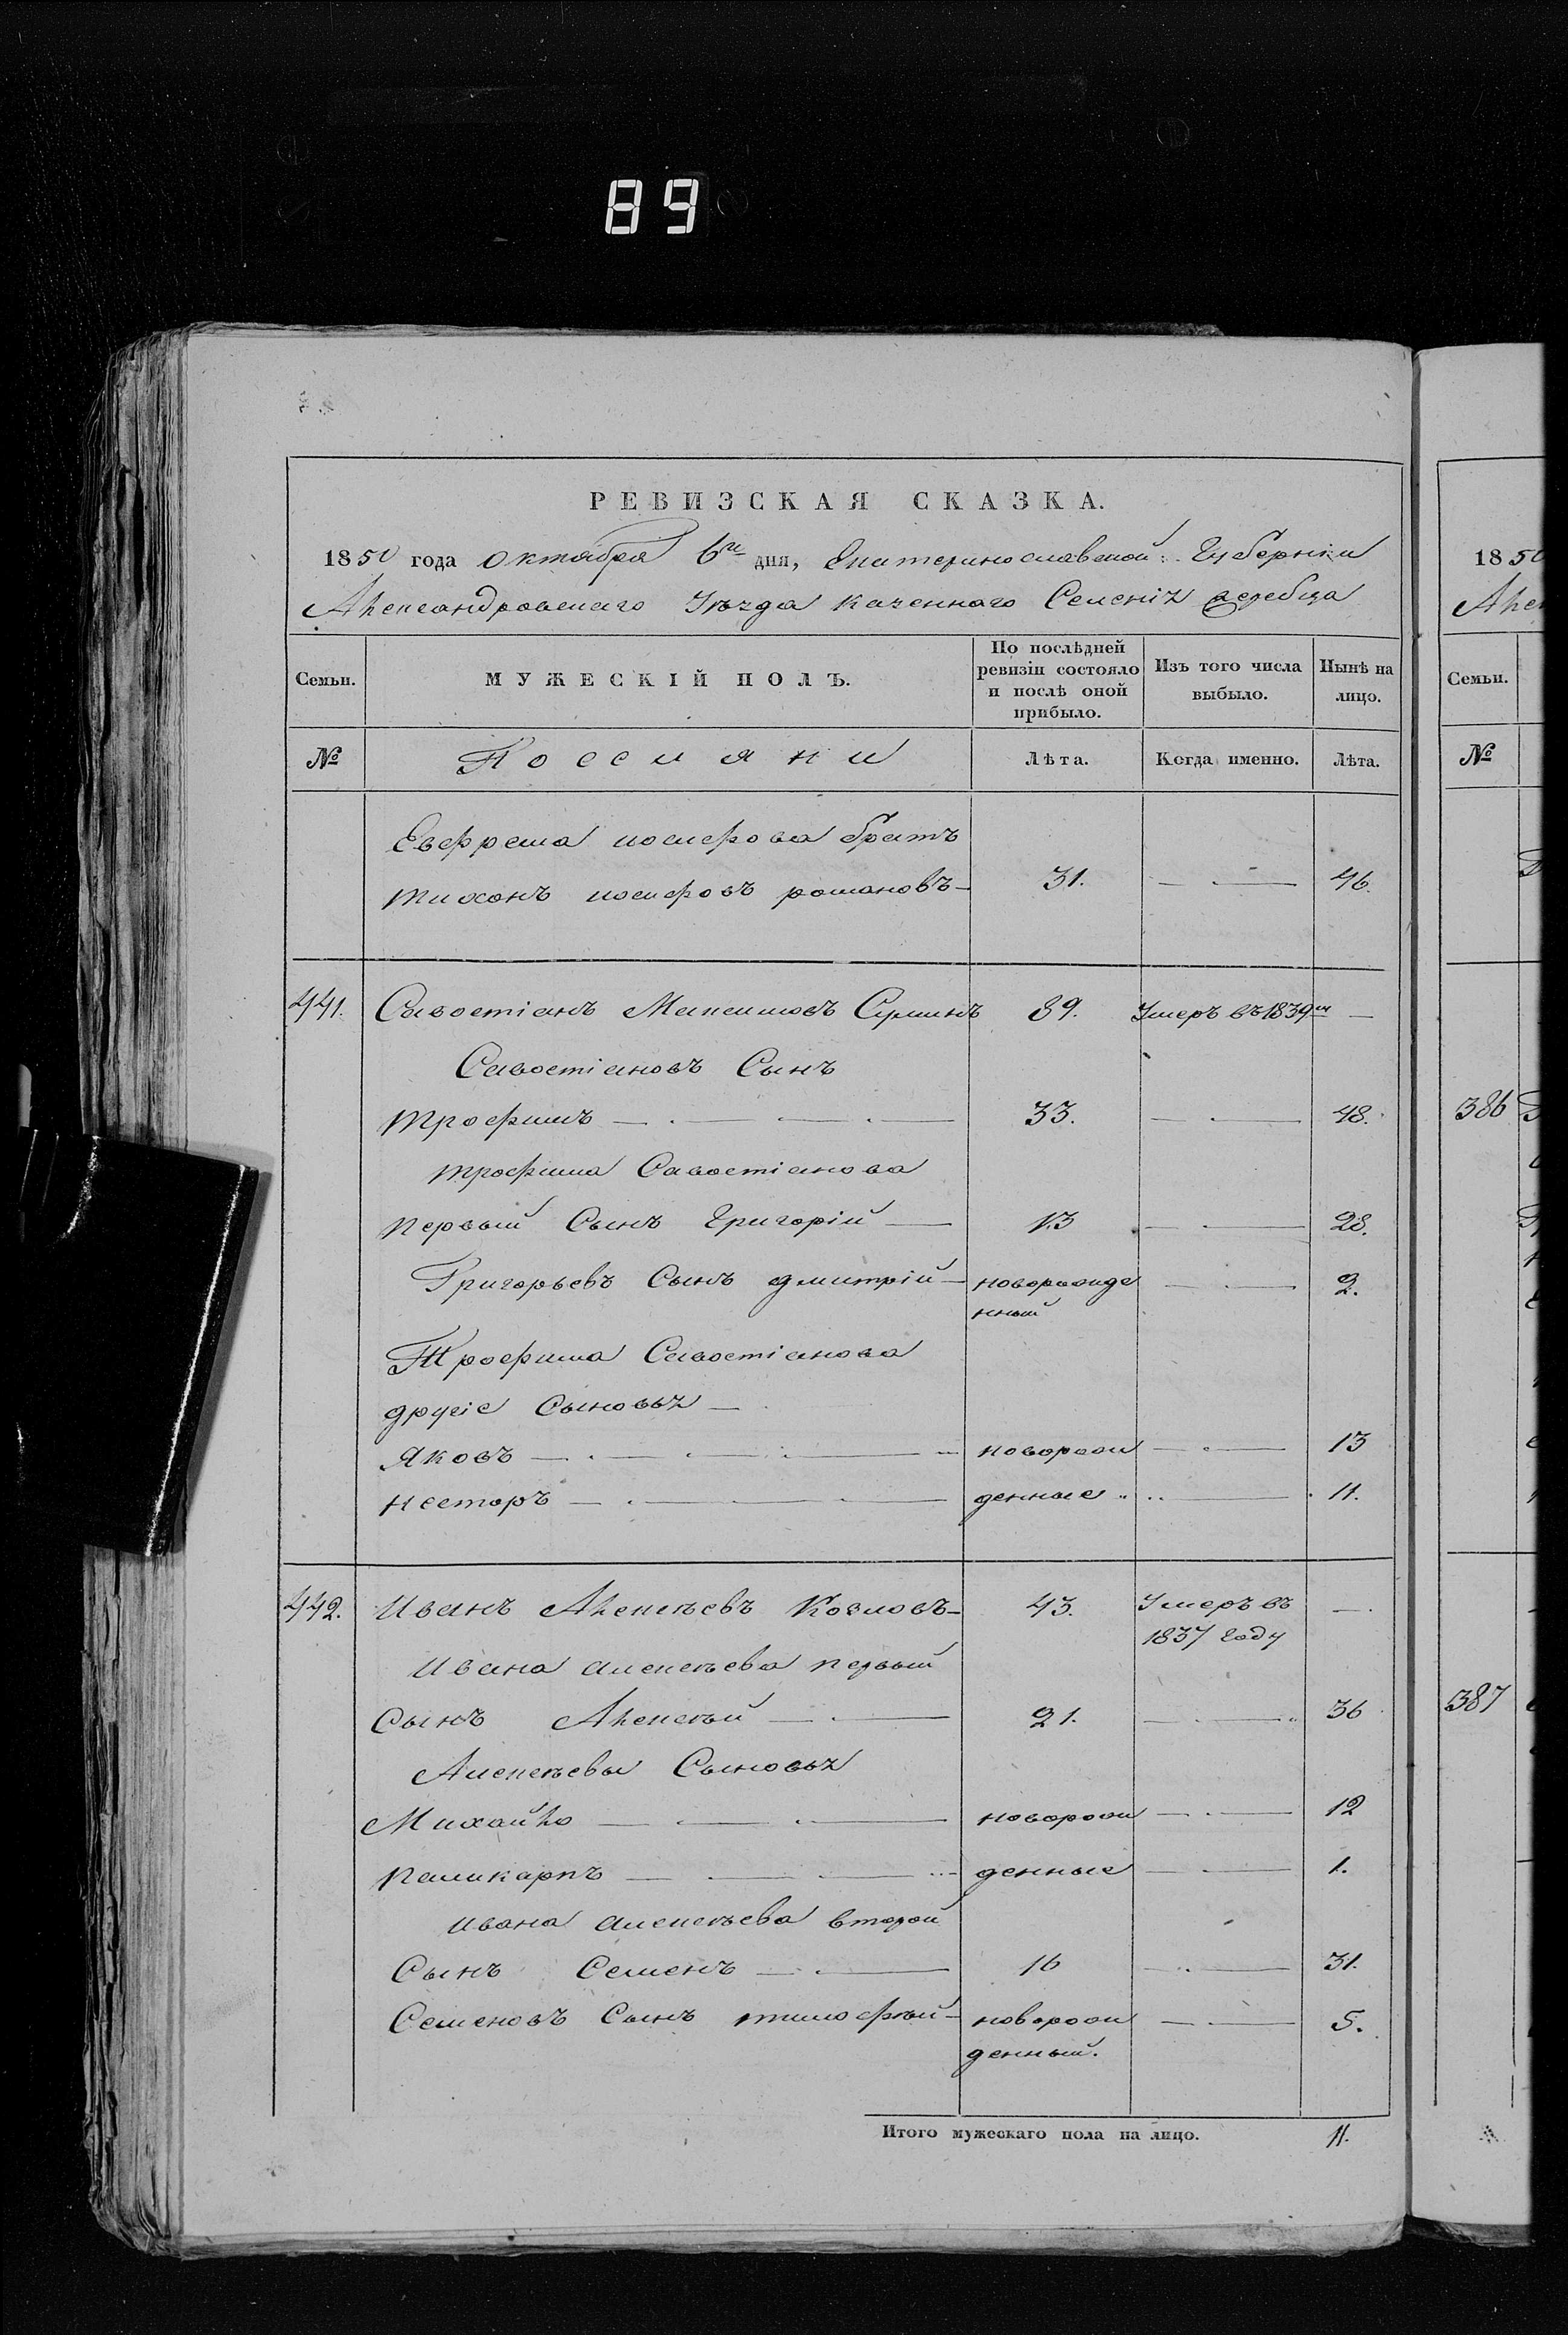 89
РЕВИЗСКАЯ СКАЗКА.
1850 года Октября 6го дня, Екатеринославской Губерніи
Александровскаго Уѣзда казеннаго Селенія Жеребца
Семьи.
МУЖЕСКІЙ ПОЛЪ.
По послѣдней ревизіи состояло и послѣ оной прибыло.
Изъ того числа выбыло.
Нынѣ на лицо.
№
Поселяни
Лѣта.
Когда именно.
Лѣта.
Евфрема иосифова братъ
тихонъ иосифовъ романовъ 31. 46.
441. Савостіанъ Максимовъ Суминъ 89. Умеръ въ 1839м
Савостіановъ Сынъ
трофимъ 33. 48.
трофима Савостіанова
первый Сынъ Григорій 13 28.
Григорьевъ Сынъ дмитрій новорожде 2.
нный
Трофима Савостіанова
другіе Сыновья
Яковъ новорож 13
несторъ денные 11.
442. Иванъ Алексѣевъ Козловъ 43. Умеръ въ
1837 году
Ивана алексѣева первый
Сынъ Алексѣй 21. 36
Алексѣевы Сыновья
Михайло новорож 12
паликарпъ денные 1.
ивана алексѣева второй
Сынъ Семенъ 16 31.
Семеновъ Сынъ тимофѣй новорож 5.
денный.
Итого мужескаго пола на лицо. 11.
1850
Семьи.
№
386
387